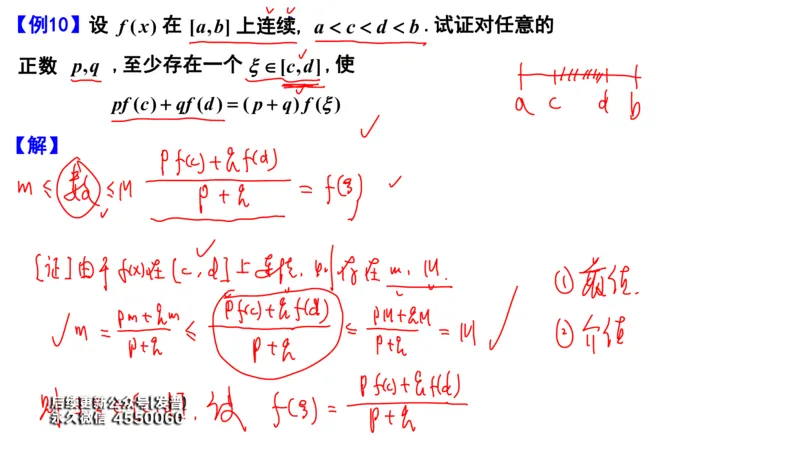 【例10】设 f(x) 在 [a,b] 上连续, a<c<d<b. 试证对任意的
正数 p,q ,至少存在一个 ξ∈[c,d],使
pf(c)+qf(d)=(p+q)f(ξ)
a c d b
【解】
m ≤ 数 ≤ M (pf(c)+qf(d))/(p+q) = f(ξ)
[证]由于f(x)在[c,d]上连续, 则存在 m, M.
m = (pm+qm)/(p+q) ≤ (pf(c)+qf(d))/(p+q) ≤ (pM+qM)/(p+q) = M
① 最值.
② 介值
则 f(ξ) = (pf(c)+qf(d))/(p+q)
后续更新公众号[发普]
永久微信 4550060